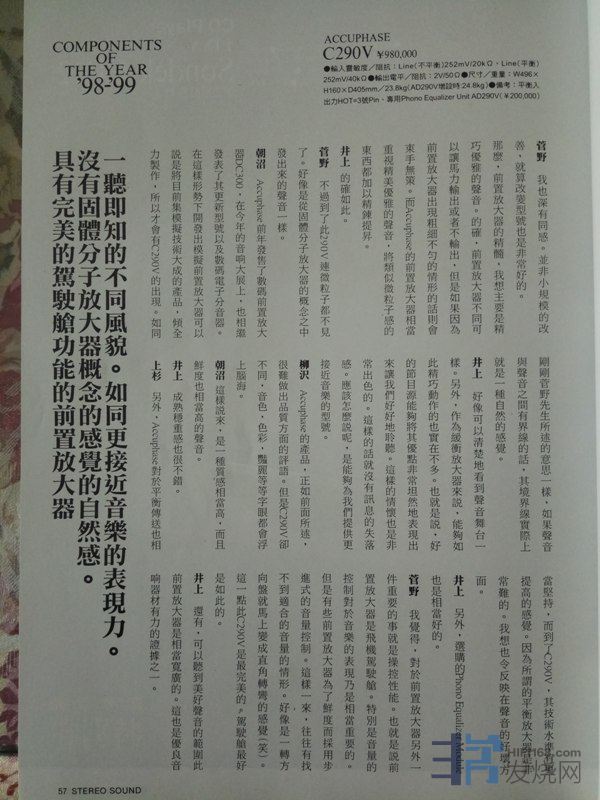 COMPONENTS
OF
THE YEAR
'98-'99
ACCUPHASE
C290V ¥980,000
●輸入靈敏度／阻抗：Line(不平衡)252mV/20kΩ、Line(平衡)
252mV/40kΩ●輸出電平／阻抗：2V/50Ω●尺寸／重量：W496×
H160×D405mm／23.8kg(AD290V增設時:24.8kg)●備考：平衡入
出力HOT=3號Pin、專用Phono Equalizer Unit AD290V(¥200,000)
一聽即知的不同風貌。如同更接近音樂的表現力。
沒有固體分子放大器概念的感覺的自然感。
具有完美的駕駛艙功能的前置放大器
菅野　我也深有同感。並非小規模的改
善，就算改變型號也是非常好的。
那麼，前置放大器的精髓，我想主要是精
巧優雅的聲音。的確，前置放大器不同可
以讓馬力輸出或者不輸出，但是如果因為
前置放大器出現粗細不勻的情形的話則會
束手無策。而Accuphase的前置放大器相當
重視精美優雅的聲音，將類似微粒子感的
東西都加以精鍊提昇。
井上　的確如此。
菅野　不過到了此290V連微粒子都不見
了。好像是從固體分子放大器的概念之中
發出來的聲音一樣。
朝沼　Accuphase前年發售了數碼前置放大
器DC300，在今年的音响大展上，也相繼
發表了其更新型號以及數碼電子分音器。
在這樣形勢下開發出模擬前置放大器可以
說是將目前集模擬技術大成的產品，傾全
力製作，所以才會有C290V的出現。如同
剛剛菅野先生所述的意思一樣，如果聲音
與聲音之間有界線的話，其境界線實際上
就是一種自然的感覺。
井上　好像可以清楚地看到聲音舞台一
樣。另外，作為緩衝放大器來說，能夠如
此精巧動作的也實在不多。也就是説，好
的節目源能夠將其優點非常坦然地表現出
來讓我們好好地聆聽。這樣的情懷也是非
常出色的。這樣的話就沒有訊息的失落
感。應該怎麼說呢，是能夠為我們提供更
接近音樂的型號。
柳沢　Accuphase的產品，正如前面所述，
很難做出品質方面的評語。但是C290V卻
不同，音色，色彩，豔麗等等字眼都會浮
上腦海。
朝沼　這樣説來，是一種質感相當高，而且
鮮度也相當高的聲音。
井上　成熟穩重感也很不錯。
上杉　另外，Accuphase對於平衡傳送也相
當堅持，而到了C290V，其技術水準有更
提高的感覺。因為所謂的平衡放大器是非
常難的。我想也令反映在聲音的好壞方
面。
井上　另外，選購的Phono Equalizer Module
也是相當好的。
菅野　我覺得，對於前置放大器另外一
件重要的事就是操控性能。也就是説前
置放大器是飛機駕駛艙。特別是音量的
控制對於音樂的表現乃是相當重要的。
但是有些前置放大器為了鮮度而採用步
進式的音量控制。這樣一來，往往有找
不到適合的音量的情形。好像是一轉方
向盤就馬上變成直角轉彎的感覺（笑）。
這一點此C290V是最完美的。駕駛艙最好
是如此的。
井上　還有，可以聽到美好聲音的範圍此
前置放大器是相當寬廣的。這也是優良音
響器材有力的證據之一。
57 STEREO SOUND
HIFI168.com
发烧网